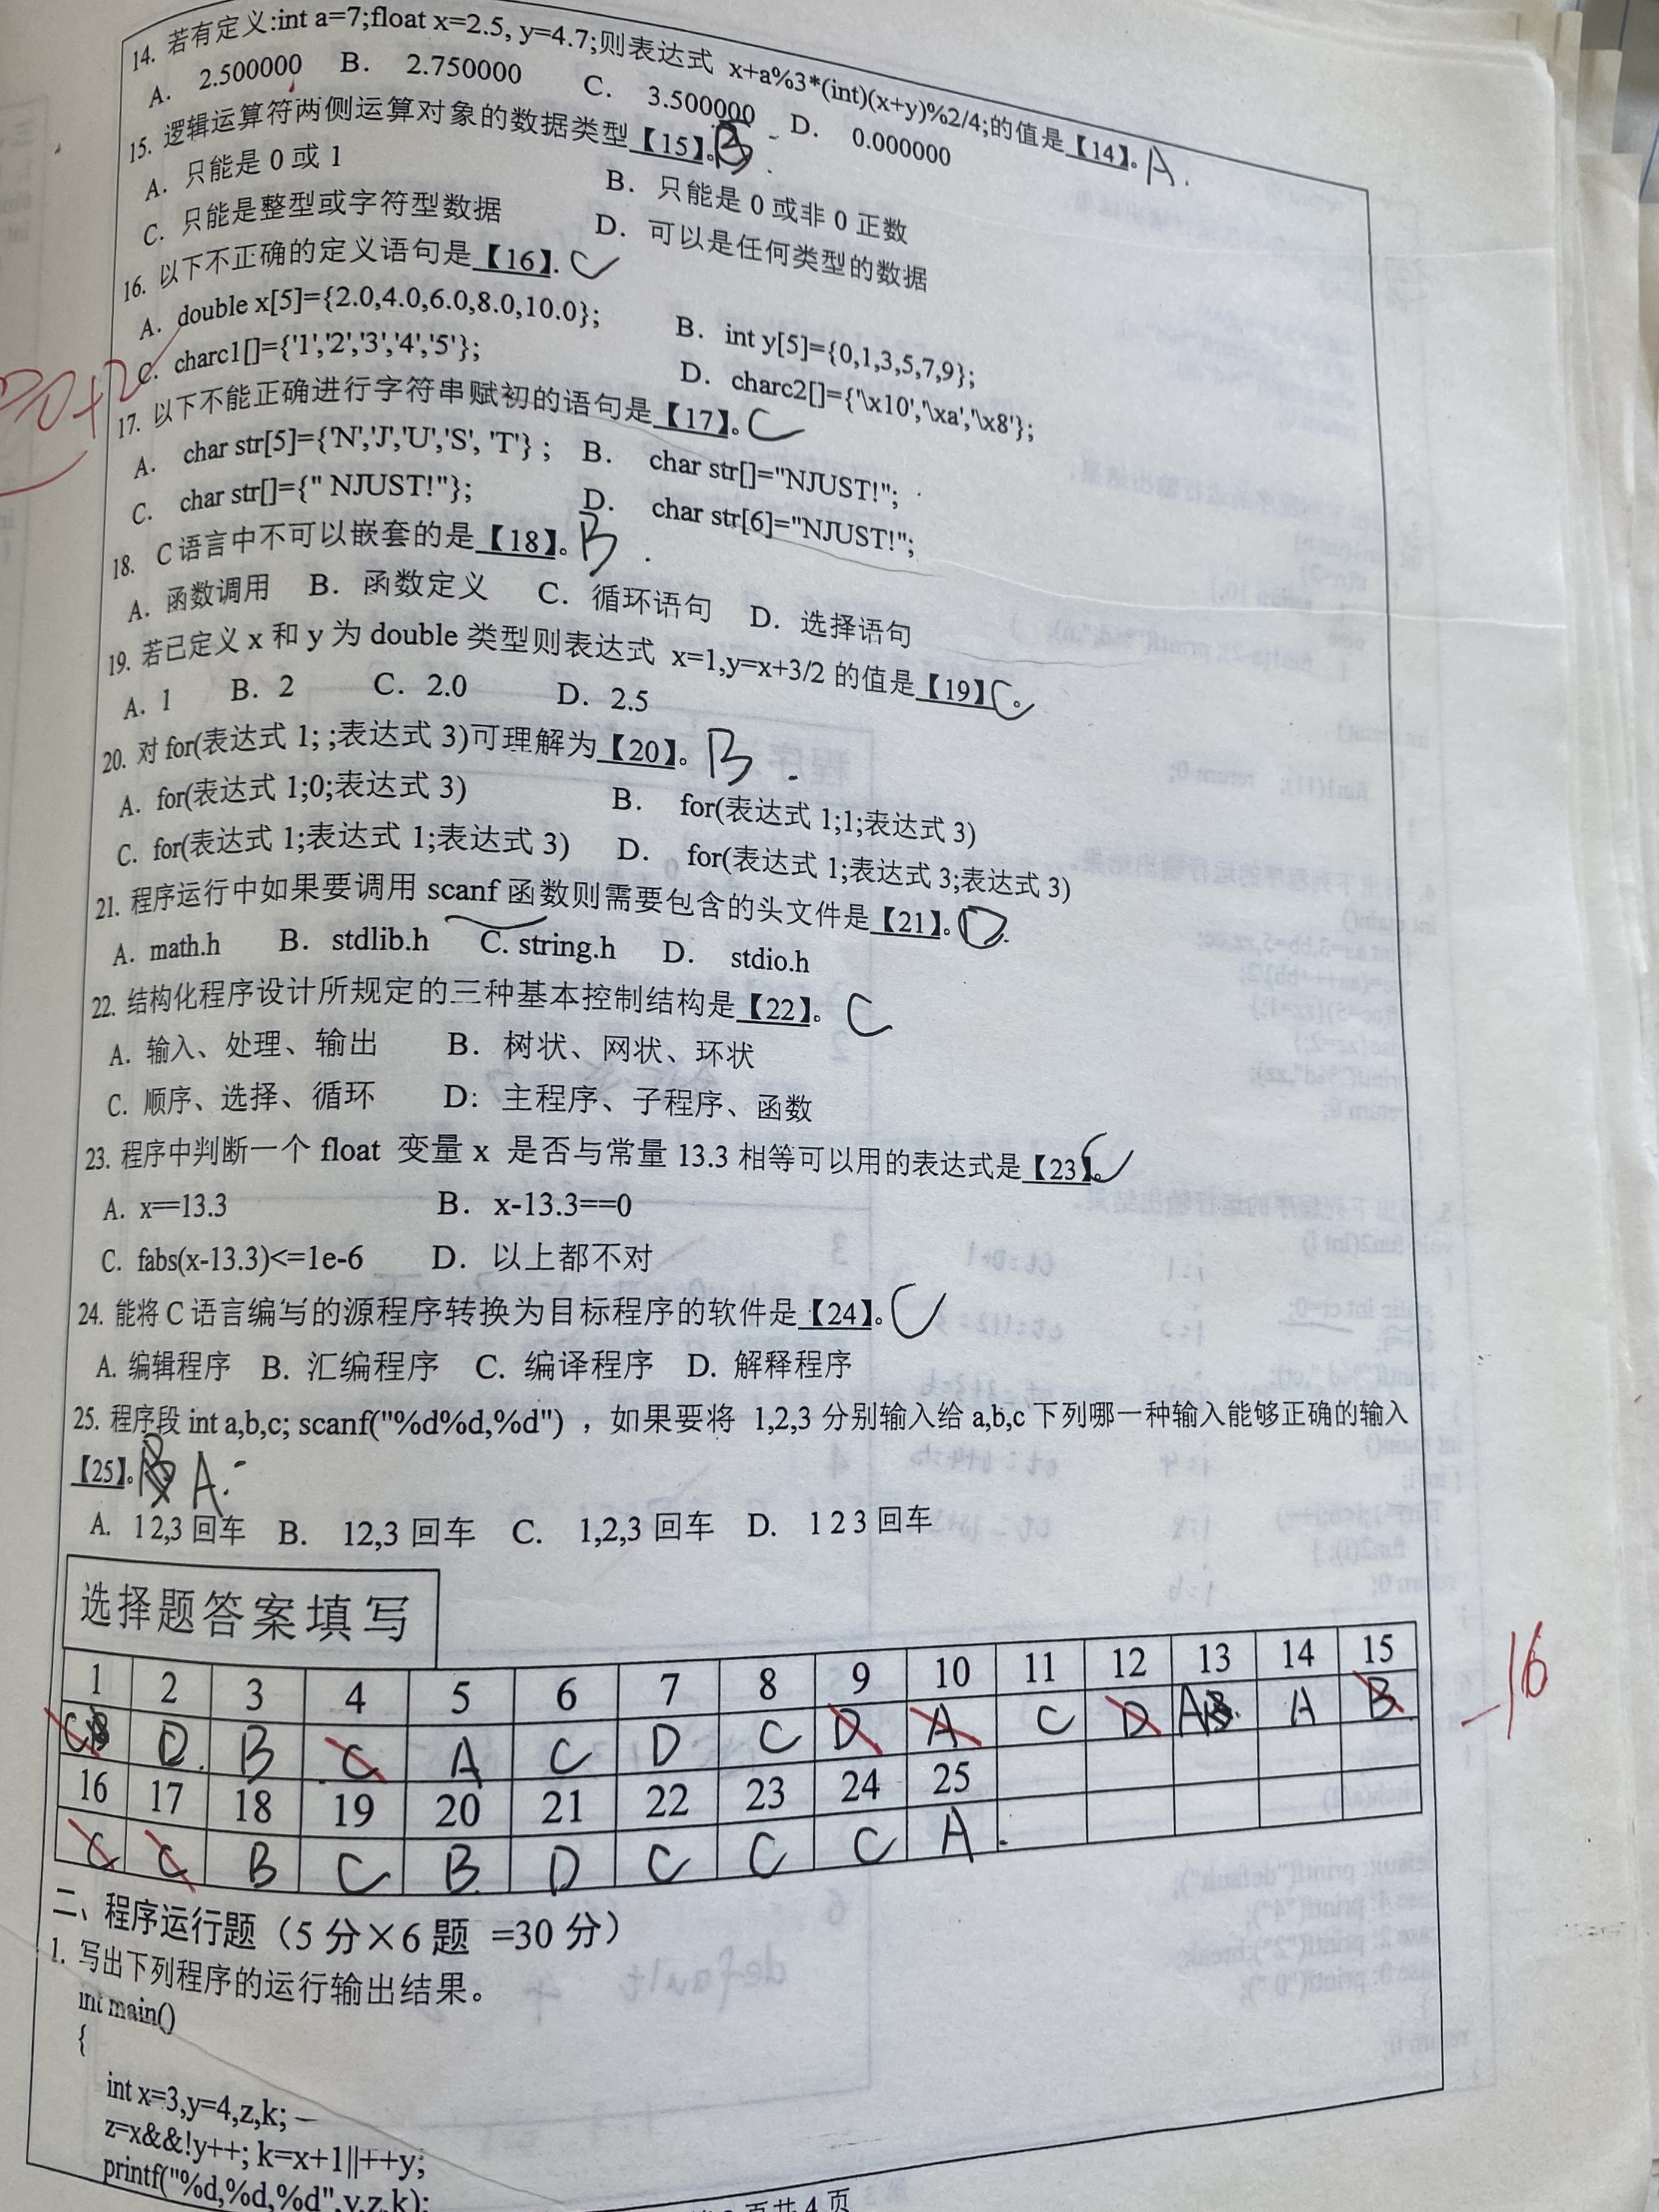 14. 若有定义:int a=7;float x=2.5, y=4.7;则表达式 x+a%3*(int)(x+y)%2/4;的值是【14】。A.
A. 2.500000 B. 2.750000 C. 3.500000 D. 0.000000
15. 逻辑运算符两侧运算对象的数据类型【15】。B
A. 只能是 0 或 1 B. 只能是 0 或非 0 正数
C. 只能是整型或字符型数据 D. 可以是任何类型的数据
16. 以下不正确的定义语句是【16】. C
A. double x[5]={2.0,4.0,6.0,8.0,10.0}; B. int y[5]={0,1,3,5,7,9};
C. charc1[]={'1','2','3','4','5'}; D. charc2[]={'\x10','\xa','\x8'};
17. 以下不能正确进行字符串赋初的语句是【17】。C
A. char str[5]={'N','J','U','S', 'T'} ; B. char str[]="NJUST!";
C. char str[]={" NJUST!"}; D. char str[6]="NJUST!";
18. C 语言中不可以嵌套的是【18】。B
A. 函数调用 B. 函数定义 C. 循环语句 D. 选择语句
19. 若已定义 x 和 y 为 double 类型则表达式 x=1,y=x+3/2 的值是【19】C。
A. 1 B. 2 C. 2.0 D. 2.5
20. 对 for(表达式 1; ;表达式 3)可理解为【20】。B
A. for(表达式 1;0;表达式 3) B. for(表达式 1;1;表达式 3)
C. for(表达式 1;表达式 1;表达式 3) D. for(表达式 1;表达式 3;表达式 3)
21. 程序运行中如果要调用 scanf 函数则需要包含的头文件是【21】。D.
A. math.h B. stdlib.h C. string.h D. stdio.h
22. 结构化程序设计所规定的三种基本控制结构是【22】。C
A. 输入、处理、输出 B. 树状、网状、环状
C. 顺序、选择、循环 D: 主程序、子程序、函数
23. 程序中判断一个 float 变量 x 是否与常量 13.3 相等可以用的表达式是【23】。C
A. x==13.3 B. x-13.3==0
C. fabs(x-13.3)<=1e-6 D. 以上都不对
24. 能将 C 语言编写的源程序转换为目标程序的软件是【24】。C
A. 编辑程序 B. 汇编程序 C. 编译程序 D. 解释程序
25. 程序段 int a,b,c; scanf("%d%d,%d") ，如果要将 1,2,3 分别输入给 a,b,c 下列哪一种输入能够正确的输入
【25】。A
A. 1 2,3 回车 B. 12,3 回车 C. 1,2,3 回车 D. 1 2 3 回车
选择题答案填写
1 2 3 4 5 6 7 8 9 10 11 12 13 14 15
C D B C A C D C D A C D A A B
-16
16 17 18 19 20 21 22 23 24 25
C C B C B D C C C A
二、程序运行题（5 分×6 题 =30 分）
1. 写出下列程序的运行输出结果。
int main()
{
int x=3,y=4,z,k;
z=x&&!y++; k=x+1||++y;
printf("%d,%d,%d",y,z,k);
页共 4 页